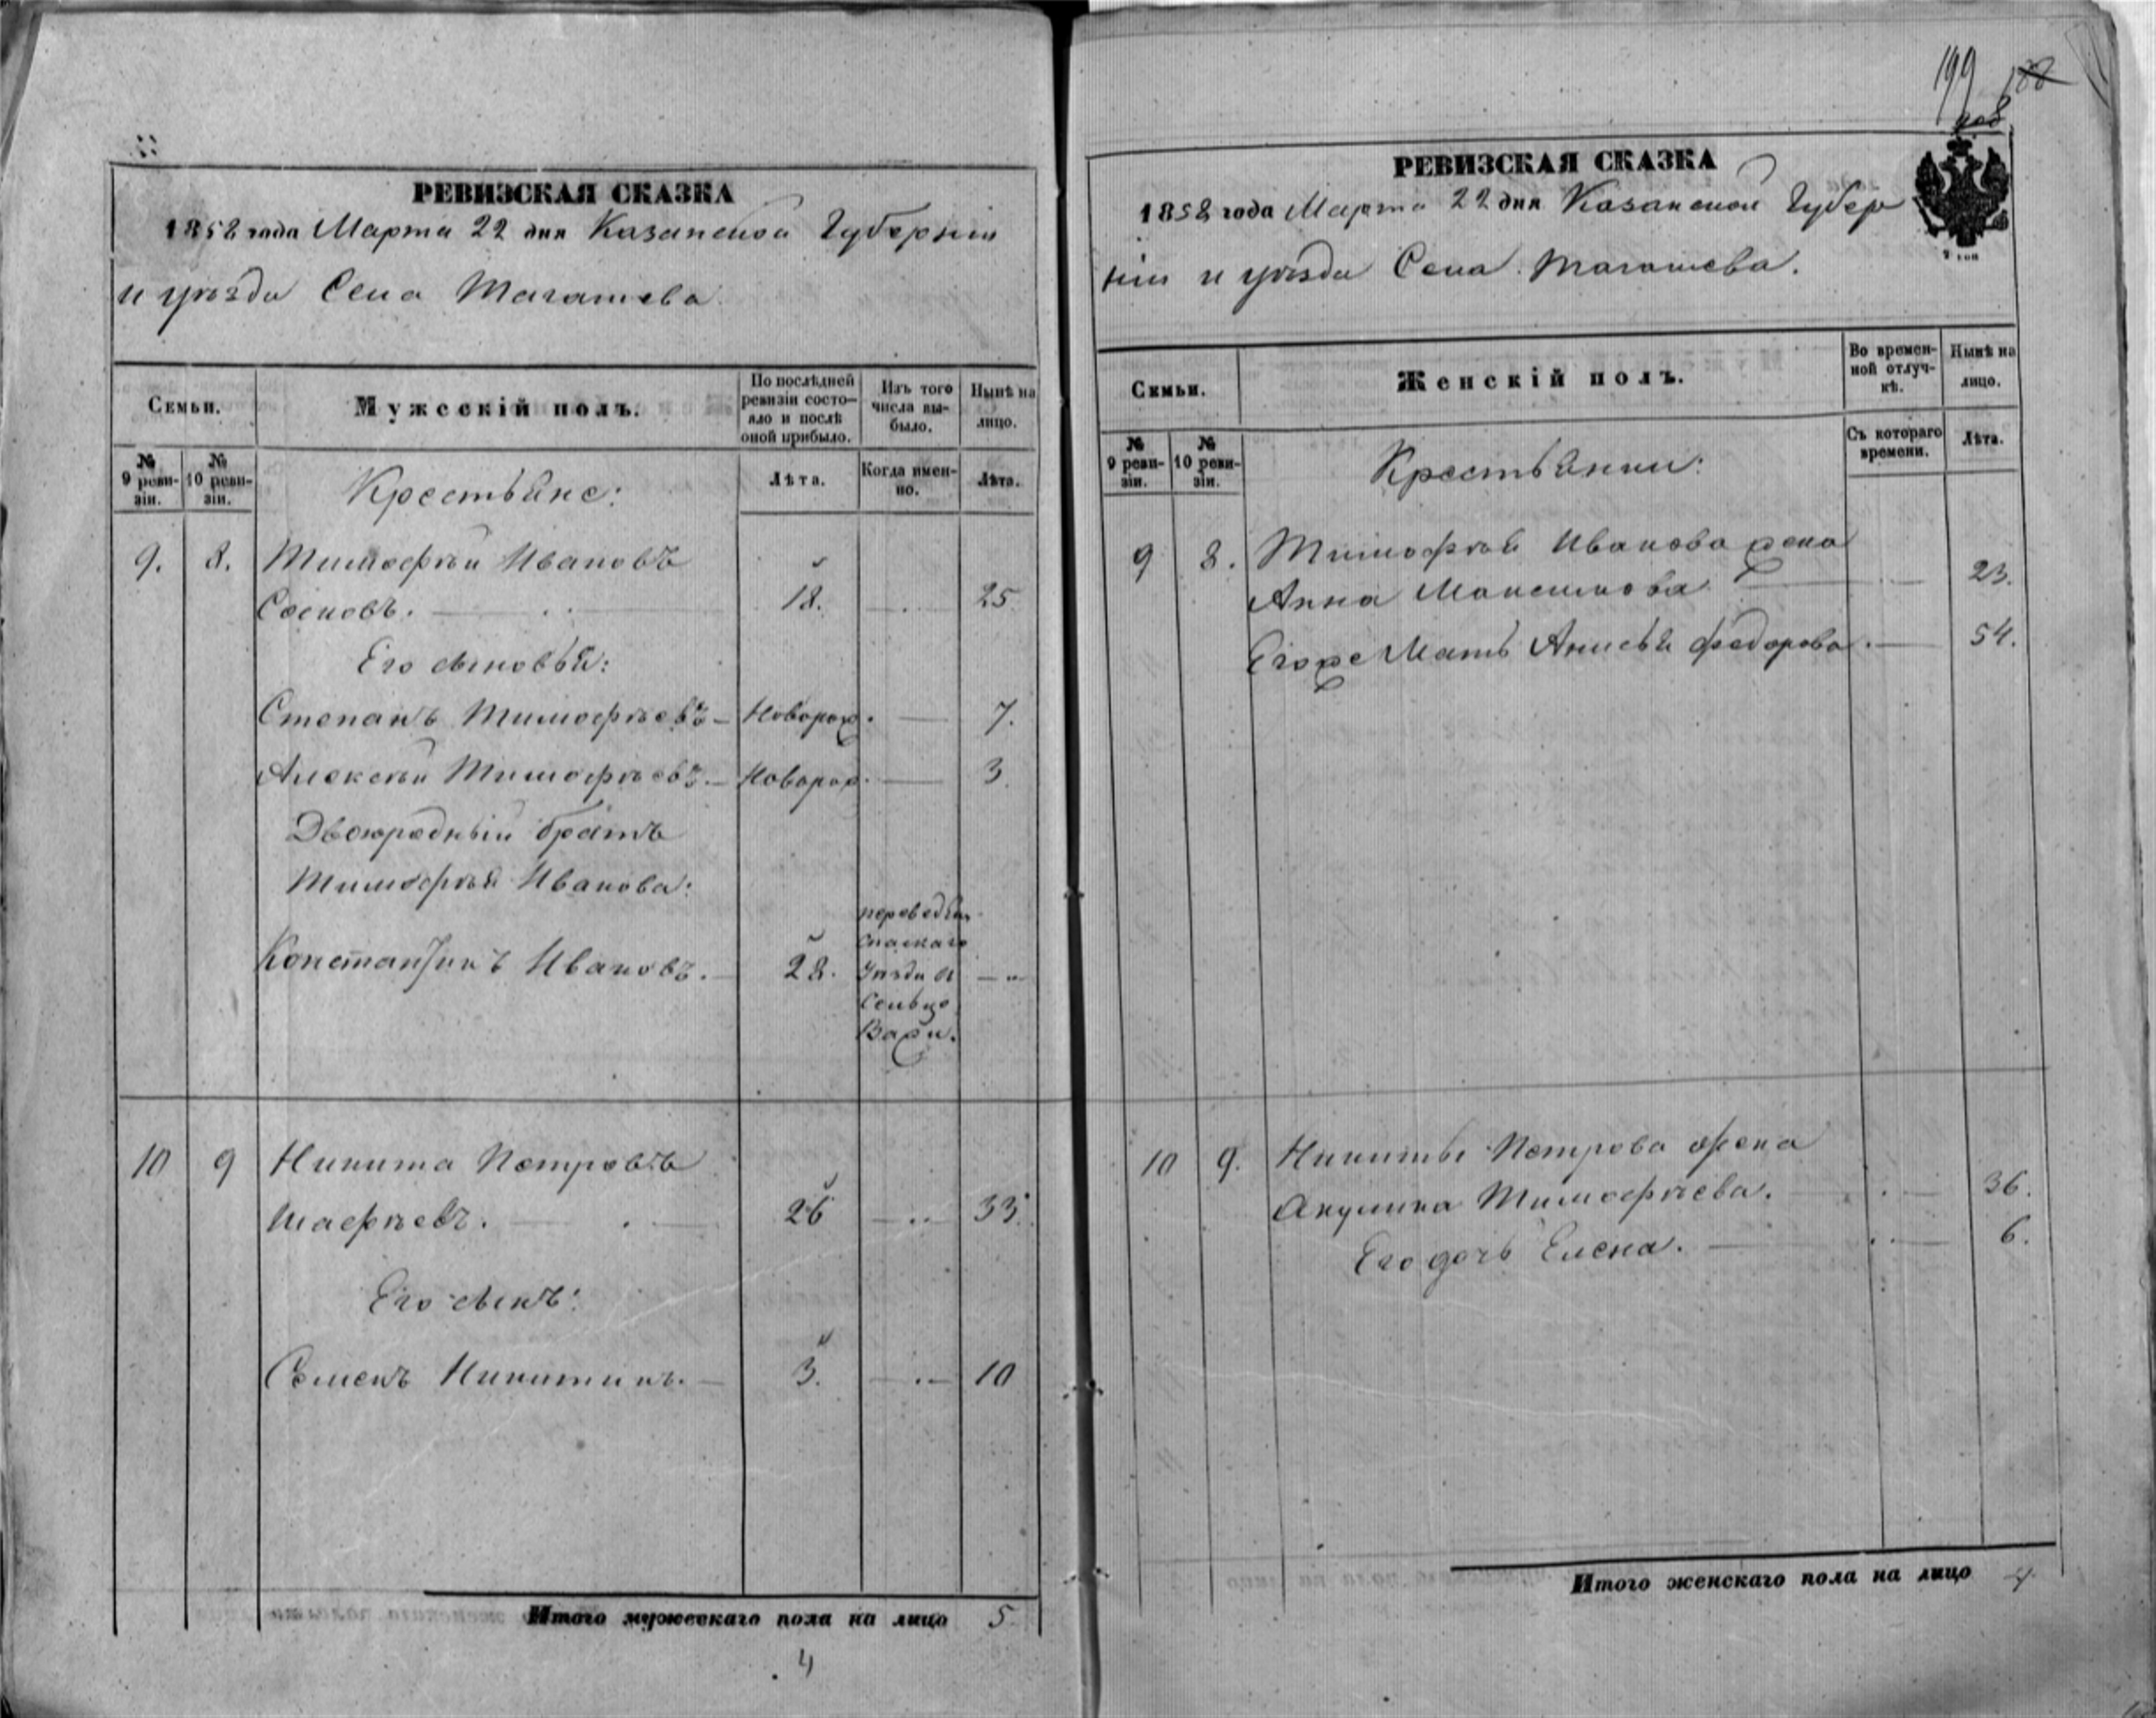 РЕВИЗСКАЯ СКАЗКА
1858 года Марта 22 дня Казанской Губерніи
и уѣзда Села Тагашева
Семьи.
Мужескій полъ.
По послѣдней ревизіи состояло и послѣ оной прибыло.
Изъ того числа выбыло.
Нынѣ на лицо.
№ 9 ревизіи.
№ 10 ревизіи.
Лѣта.
Когда именно.
Лѣта.
Крестьяне:
9. 8. Тимофѣй Ивановъ
Сосновъ. 18. 25
Его сыновья:
Степанъ Тимофѣевъ Новорож. 7.
Алексѣй Тимофѣевъ. Новорож. 3.
Двоюродный братъ
Тимофѣя Иванова:
Константинъ Ивановъ. 28.
Спаскаго
Уѣзда в
Сельцо
10 9 Никита Петровъ
26 33.
Его сынъ:
Семенъ Никитинъ. 3. 10
Итого мужескаго пола на лицо 5
4
199
188
РЕВИЗСКАЯ СКАЗКА
1858 года Марта 22 дня Казанской Губер
ніи и уѣзда Села Тагашева.
Семьи.
Женскій полъ.
Во временной отлучкѣ.
Нынѣ на лицо.
№ 9 ревизіи.
№ 10 ревизіи.
Съ котораго времени.
Лѣта.
Крестьянки:
9 8. Тимофѣя Иванова жена
Анна Максимова 23.
Егоже Мать Анисья Федорова. 54.
10 9. Никиты Петрова жена
Акулина Тимофѣева. 36.
Его дочь Елена. 6.
Итого женскаго пола на лицо 4